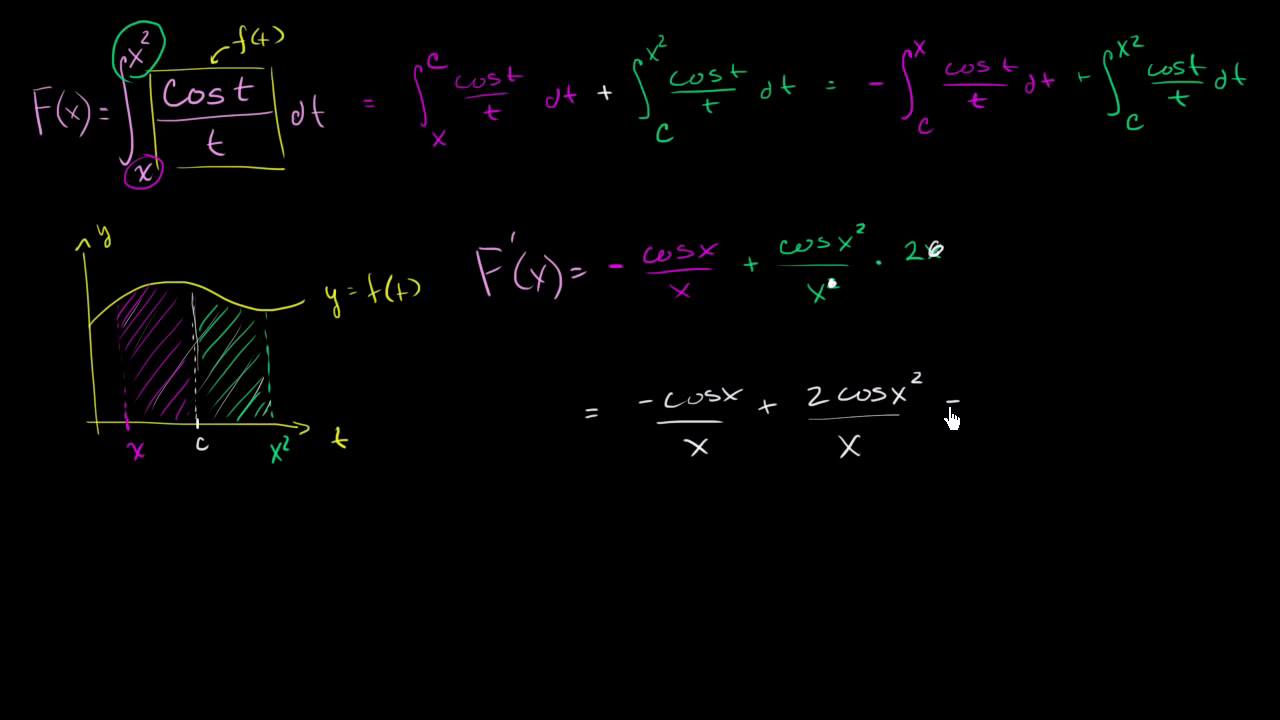 f(t)
F(x) = ∫_x^{x²} cos t / t dt = ∫_x^c cos t / t dt + ∫_c^{x²} cos t / t dt = - ∫_c^x cos t / t dt + ∫_c^{x²} cos t / t dt
y
y = f(t)
x c x² t
F'(x) = - cos x / x + cos x² / x² · 2x
= -cos x / x + 2 cos x² / x =